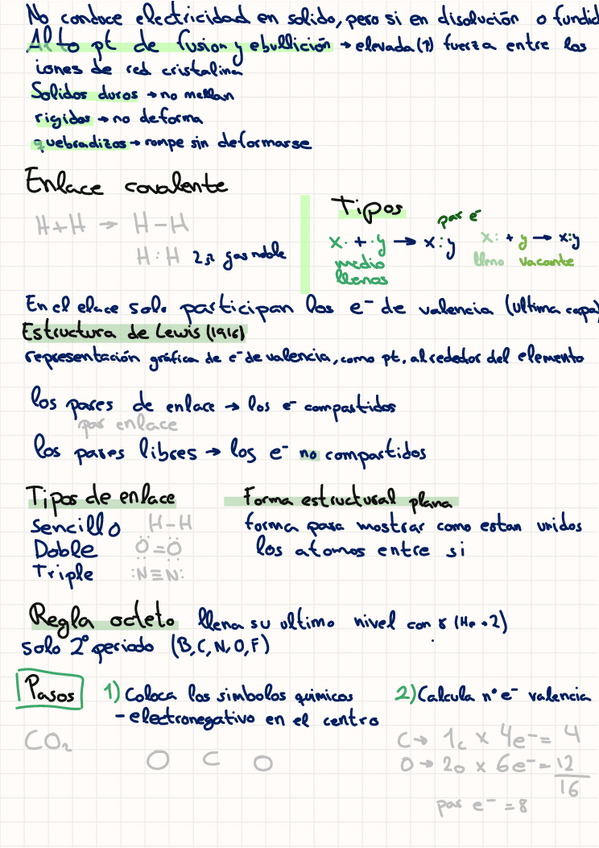 No conduce electricidad en solido, pero si en disolución o fundid
Alto pt de fusion y ebullición → elevada (↑) fuerza entre los
iones de red cristalina
Solidos duros → no mellan
rigidos → no deforma
quebradizos → rompe sin deformarse
Enlace covalente
H+H → H-H
H:H 2,2 gas noble
Tipos
par e⁻
x· + ·y → x:y
medio
llenos
x: + y → x:y
lleno vacante
En el elace solo participan los e⁻ de valencia (ultima capa)
Estructura de Lewis (1916)
representación gráfica de e⁻ de valencia, como pt, alrededor del elemento
los pares de enlace → los e⁻ compartidos
par enlace
los pares libres → los e⁻ no compartidos
Tipos de enlace
sencillo H-H
Doble Ö=Ö
Triple :N≡N:
Forma estructural plana
forma para mostrar como estan unidos
los atomos entre si
Regla octeto llena su ultimo nivel con 8 (He → 2)
solo 2º periodo (B, C, N, O, F)
Pasos
1) Coloca los simbolos quimicos
-electronegativo en el centro
CO₂
O C O
2) Calcula nº e⁻ valencia
C → 1c × 4e⁻ = 4
O → 2o × 6e⁻ = 12
16
par e⁻ = 8